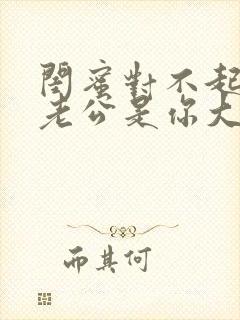 閨蜜對不起
老公是你大
而其何